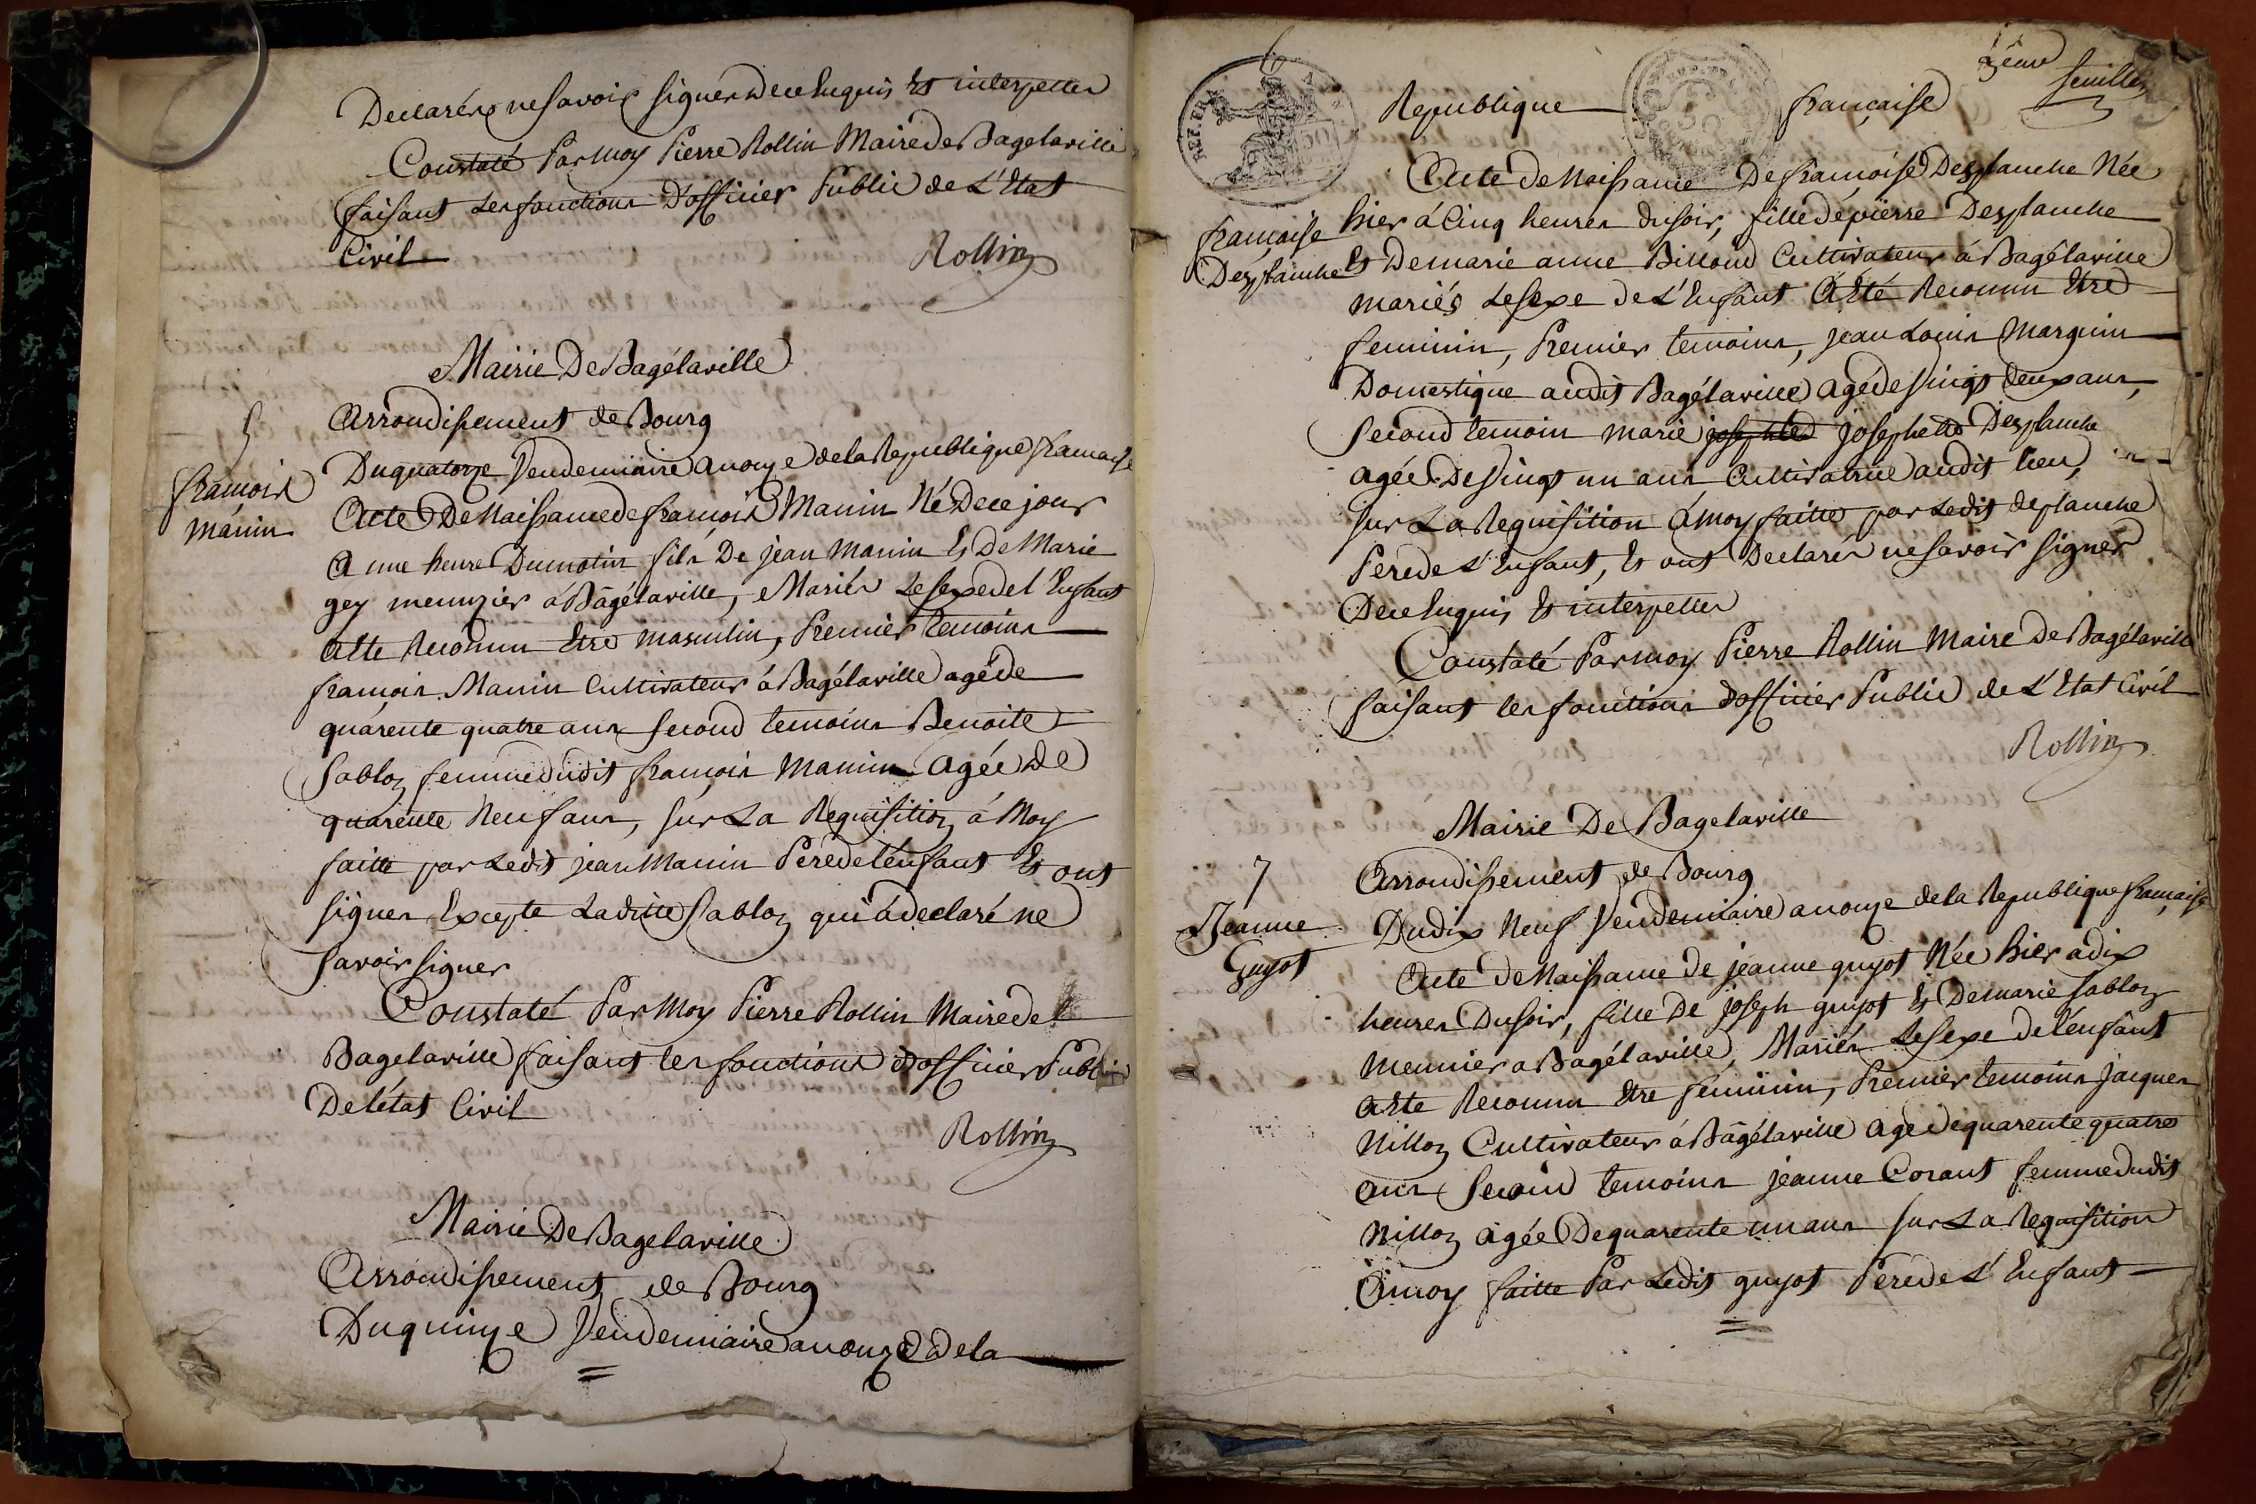 Declarés ne savoir signer de ce Enquis Et interpeller
Constaté Par Moy Pierre Rollin Maire de Bagelaville
faisant les fonctions D'officier Public de L'Etat
Civil
Rollin
Mairie De Bagélaville
5
Arrondissement de Bourg
Du quatorze Vendemiaire an onze de la Republique francaise
francois
manin
Acte De Naissance de francois Manin Né De ce jour
a une heure Du matin fils De jean Manin Et De Marie
gey meunzier á Bâgélaville, Mariés Le sexe de l'Enfant
a Ete Reconnu Etre masculin, Premier temoins
francois Manin Cultivateur á Bagélaville agé de
quarente quatre ans second temoins Benoite
Sablon femme dudit francois Manin agée de
quarente Neuf ans, sur La Requisition á Moy
faitte par Ledit jean Manin Pere de l'énfant Et ont
signer Excepte Laditte Sablon qui á declaré ne
savoir signer
Constaté Par Moy Pierre Rollin Maire de
Bagelaville faisant les fonctions d'officier Public
De l'état Civil
Rollin
Mairie De Bagelaville
Arrondissement de Bourg
Du quinze Vendemiaire an onze de la
3eme
feuillet
6
REP. FRA.
50
Republique francaise
Acte de Naissance De francoise Desplanche Née
francoise
Desplanche
hier á Cinq heures du soir, fille de piérre Desplanche
Et De marie anne Billoud Cultivateur á Bagélaville
mariés Le sexe de L'Enfant A Eté Reconnu Etre
feminin, Premier temoins, jean Louis Marguin
Domestique audit Bagélaville agé de Vingt deux ans,
second temoin marie josephted josephette Desplanche
agée De Vingt un ans Cultivatrice audit lieu,
sur La Requisition á moy faitte par Ledit desplanche
Pere de L'Enfant, Et ont Declarés ne savoir signer
De ce Enquis Et interpeller
Constaté Par moy Pierre Rollin Maire De Bagélaville
faisant les fonctions d'officier Public de L'Etat Civil
Rollin
Mairie De Bagelaville
7
Arrondissement de Bourg
Jeanne
Guyot
Du dix Neuf Vendemiaire an onze de la Republique francaise
Acte de Naissance de jeanne guyot Née hier a dix
heures Du soir, fille De joseph guyot Et De marie Sablon
Meunier a Bagélaville, Mariés Le sexe de l'énfant
a Ete Reconnu Etre féminin, Premier temoins jacques
Nillon Cultivateur á Bâgélaville agé de quarente quatre
ans second temoins jeanne Corant femme dudit
Nillon agée De quarente un ans sur La Requisition
á moy faitte Par Ledit guyot Pere de L'Enfant